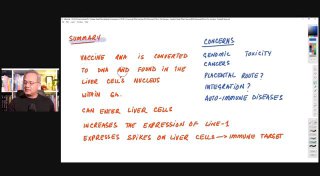 SUMMARY
VACCINE RNA IS CONVERTED
TO DNA AND FOUND IN THE
LIVER CELL'S NUCLEUS
WITHIN 6H.
CAN ENTER LIVER CELLS
INCREASES THE EXPRESSION OF LINE-1
EXPRESSES SPIKES ON LIVER CELLS → IMMUNE TARGET
CONCERNS
GENOMIC TOXICITY
CANCERS
PLACENTAL ROUTE?
INTEGRATION?
AUTO-IMMUNE DISEASES